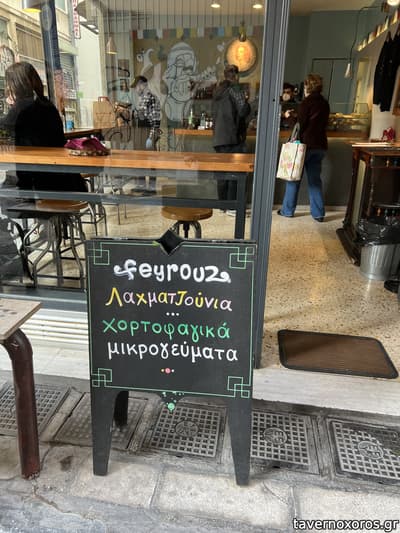 feyrouz
ΛαχματζούνιΑ
...
χορτοφαγικά
μικρογεύματα
tavernoxoros.gr